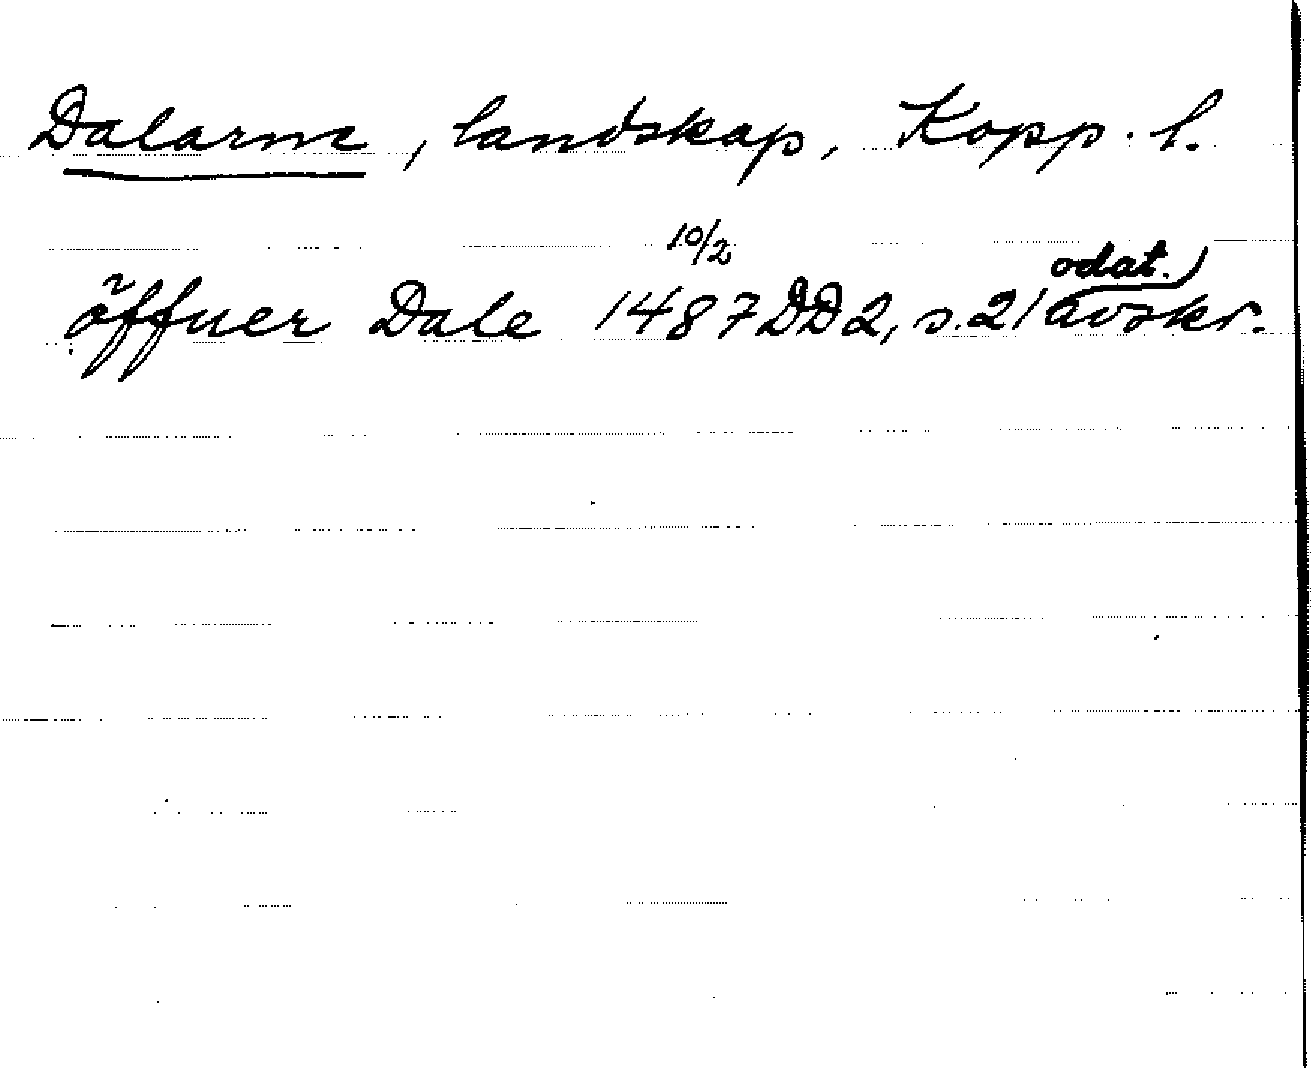 Dalarne, landskap, Kopp. l.
öffner Dale 1487 10/2 DD2, s.21 odat. avskr.